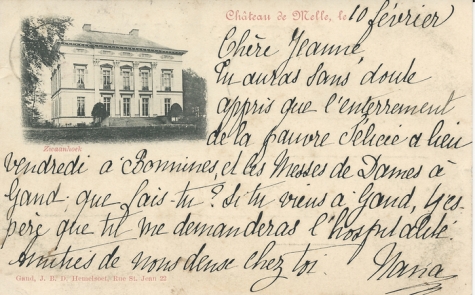 Château de Melle, le 10 février
Chère Jeanne
Tu auras sans doute
appris que l'enterrement
de la pauvre Félicie a lieu
Zwaenhoek
vendredi à Bommines, et les Messes de Dames à
Gand; que fais tu? Si tu viens à Gand, j'es-
père que tu me demanderas l'hospitalité.
Amitiés de nous deux chez toi Maria
Gand, J. B. D. Hemelsoet, Rue St. Jean 22